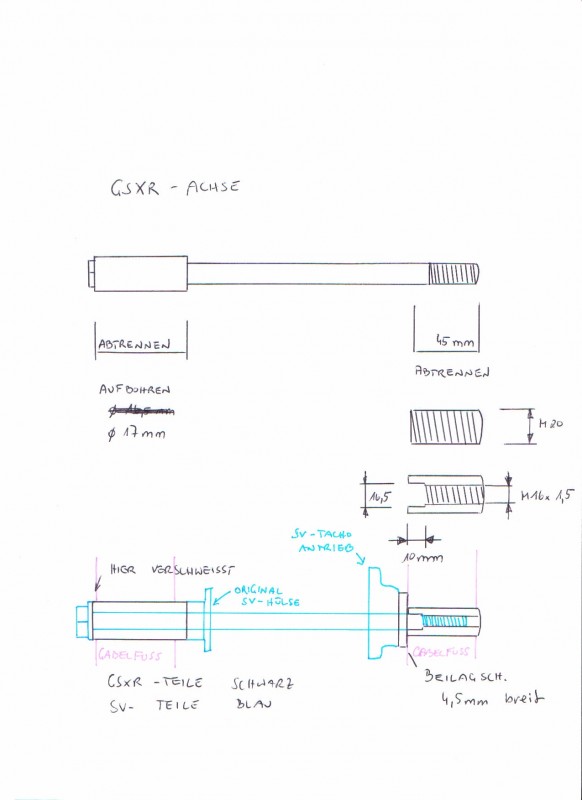 GSXR - ACHSE
ABTRENNEN
45 mm
ABTRENNEN
AUFBOHREN
ϕ 16,5 mm
ϕ 17 mm
M 20
16,5
M16 x 1,5
10 mm
SV - TACHO
ANTRIEB
HIER VERSCHWEISST
ORIGINAL
SV - HÜLSE
GABELFUSS
GABELFUSS
GSXR - TEILE SCHWARZ
SV- TEILE BLAU
BEILAGSCH.
4,5 mm breit